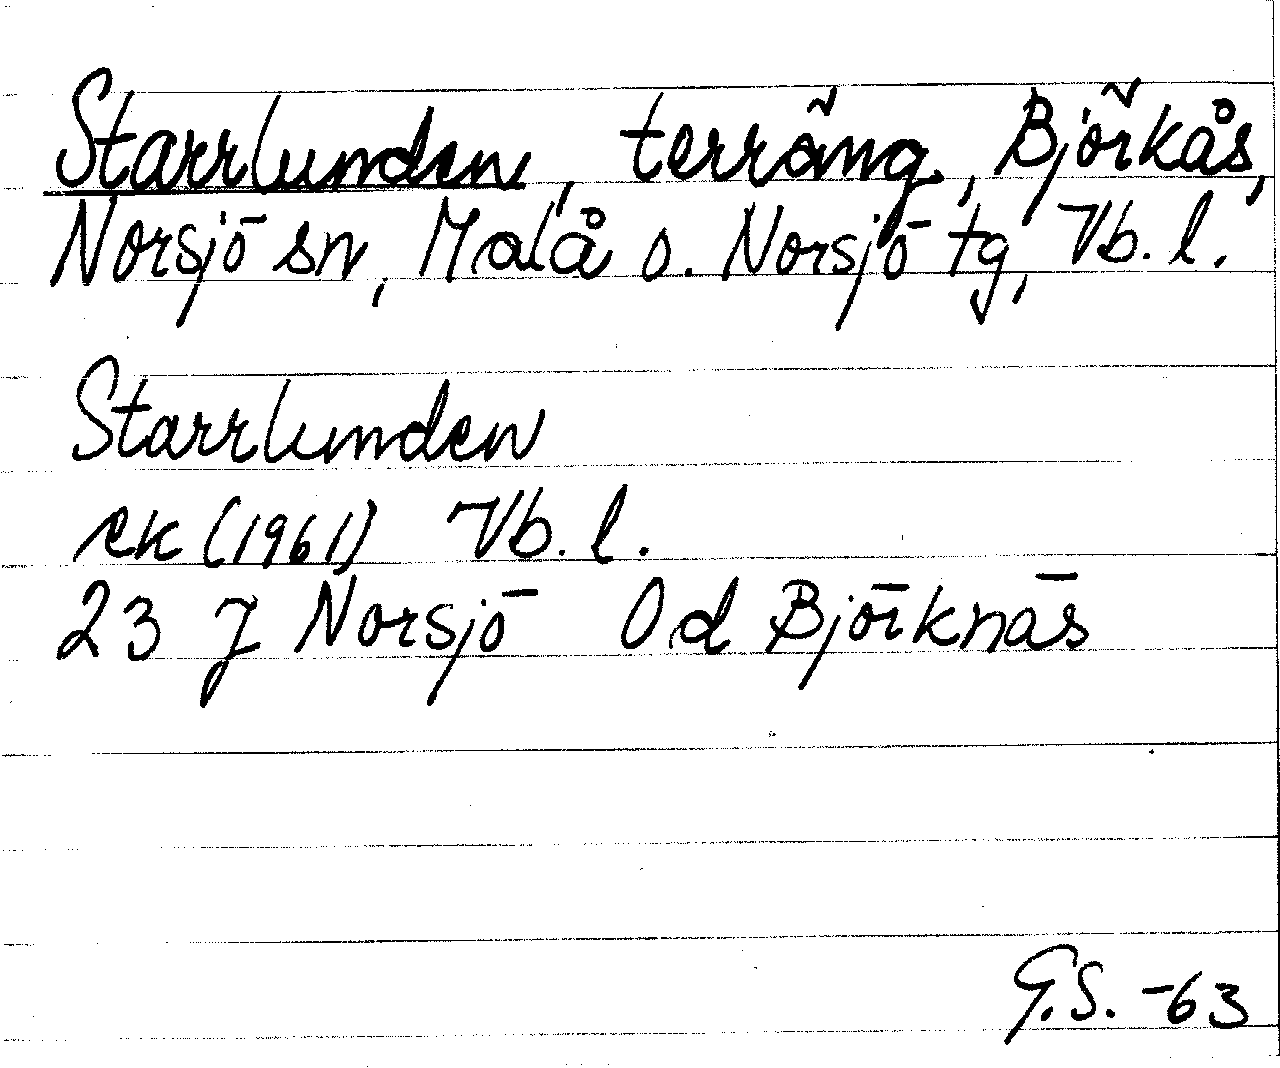 Starrlunden, terräng, Björkås,
Norsjö sn, Malå o. Norsjö tg, Vb. l.
Starrlunden
ek (1961) Vb. l.
23 J Norsjö 0d Björknäs
G.S. -63